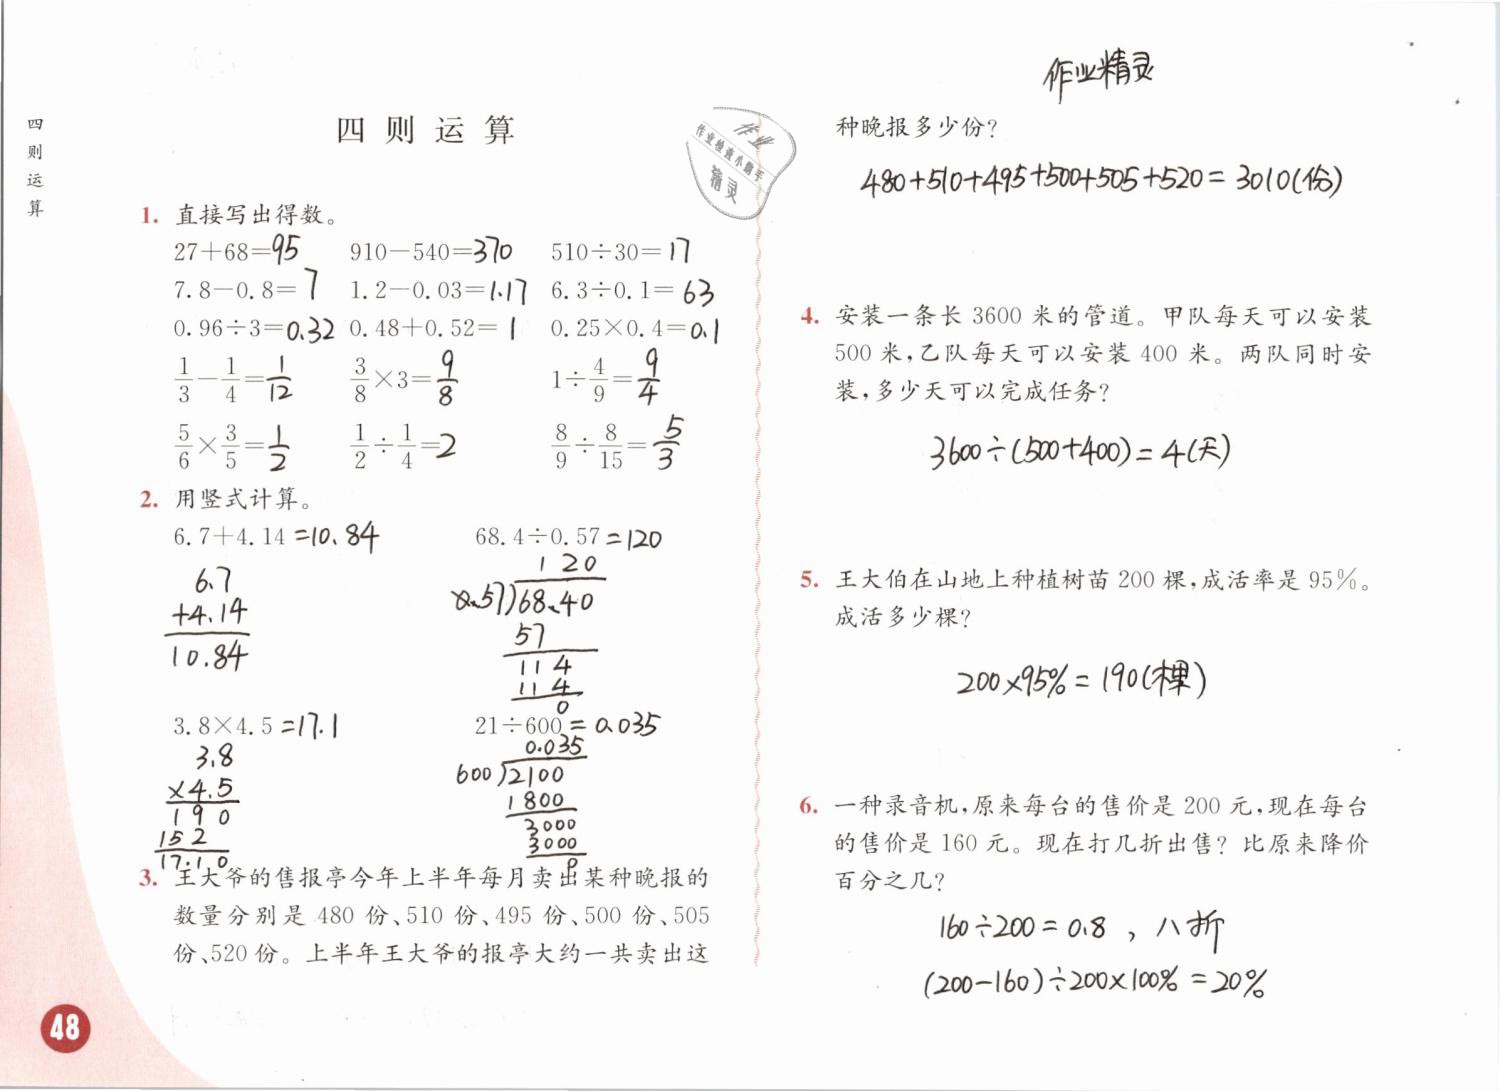 四则运算
四则运算
1. 直接写出得数。
27+68=95 910-540=370 510÷30=17
7.8-0.8=7 1.2-0.03=1.17 6.3÷0.1=63
0.96÷3=0.32 0.48+0.52=1 0.25×0.4=0.1
1/3-1/4=1/12 3/8×3=9/8 1÷4/9=9/4
5/6×3/5=1/2 1/2÷1/4=2 8/9÷8/15=5/3
2. 用竖式计算。
6.7+4.14=10.84 68.4÷0.57=120
6.7
+4.14
10.84
120
0.57)68.40
57
114
114
0
3.8×4.5=17.1 21÷600=0.035
3.8
×4.5
190
152
17.10
0.035
600)2100
1800
3000
3000
0
3. 王大爷的售报亭今年上半年每月卖出某种晚报的
数量分别是 480 份、510 份、495 份、500 份、505
份、520 份。上半年王大爷的报亭大约一共卖出这
48
作业
作业检查小助手
精灵
作业精灵
种晚报多少份?
480+510+495+500+505+520=3010(份)
4. 安装一条长 3600 米的管道。甲队每天可以安装
500 米,乙队每天可以安装 400 米。两队同时安
装,多少天可以完成任务?
3600÷(500+400)=4(天)
5. 王大伯在山地上种植树苗 200 棵,成活率是 95%。
成活多少棵?
200×95%=190(棵)
6. 一种录音机,原来每台的售价是 200 元,现在每台
的售价是 160 元。现在打几折出售? 比原来降价
百分之几?
160÷200=0.8,八折
(200-160)÷200×100%=20%